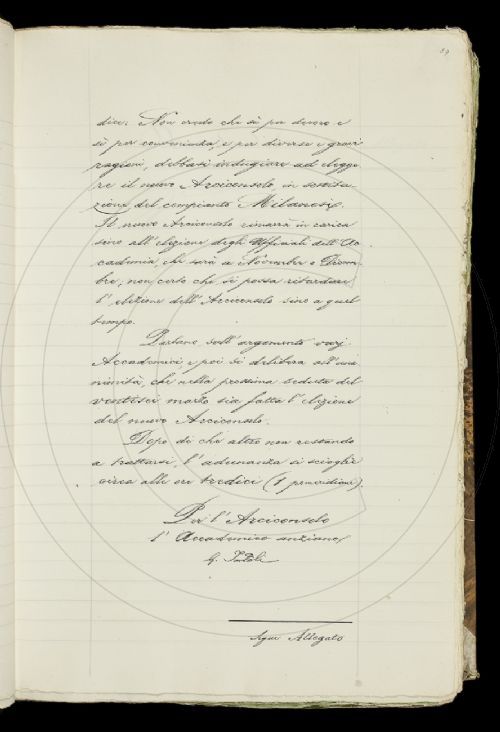 89
dice: Non credo che sì per decoro e
sì per convenienza, e per diverse e gravi
ragioni, debbasi indugiare ad elegge
re il nuovo Arciconsolo, in sostitu
zione del compianto Milanesi.
Il nuovo Arciconsolo rimarrà in carica
sino all'elezione degli Uffiziali dell'Ac
cademia, che sarà a Novembre o Dicem
bre; non credo che si possa ritardare
l'elezione dell'Arciconsolo sino a quel
tempo.
Parlano sull'argomento varj
Accademici e poi si delibera all'una
nimità, che nella prossima seduta del
ventisei marzo sia fatta l'elezione
del nuovo Arciconsolo.
Dopo di che altro non restando
a trattarsi, l'adunanza si scioglie
circa alle ore tredici (1 pomeridiana).
Per l'Arciconsolo
l'Accademico anziano
Segue Allegato